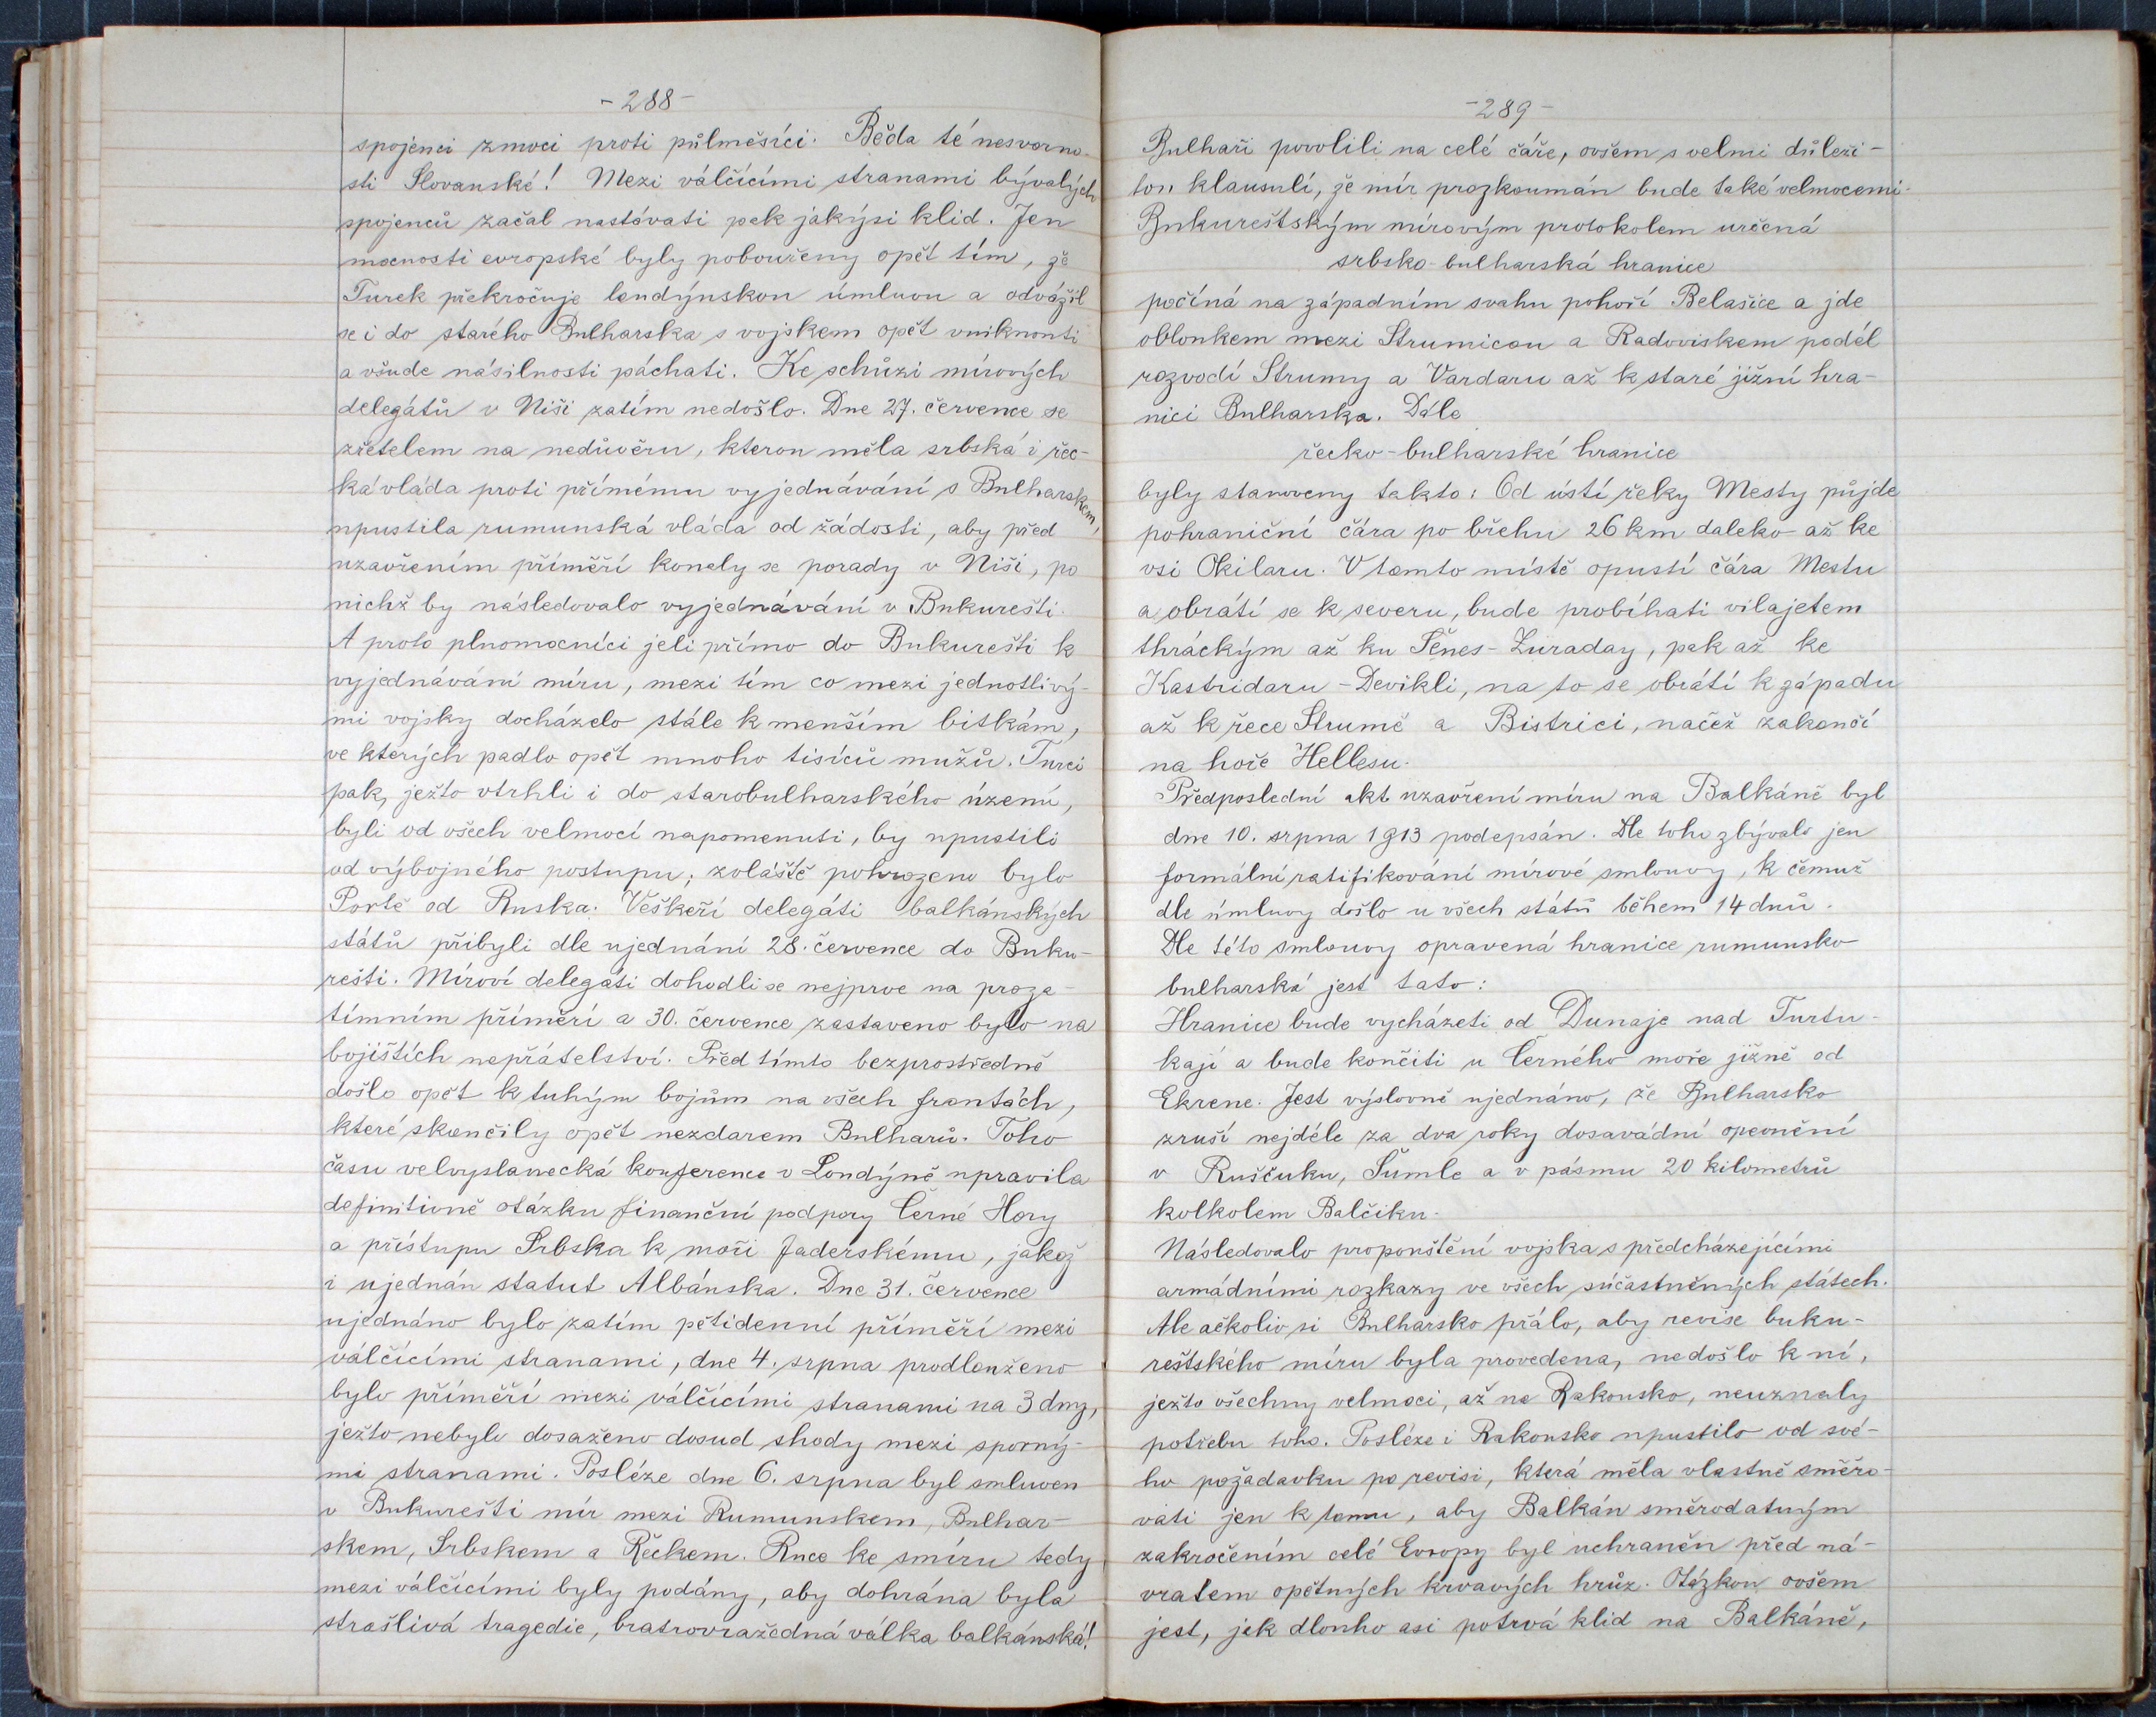 -288-
spojenci zmoci proti půlměsíci. Běda té nesvorno-
sti Slovanské! Mezi válčícími stranami bývalých
spojenců začal nastávati pak jakýsi klid. Jen
mocnosti evropské byly pobouřeny opět tím, že
Turek překročuje londýnskou úmluvu a odvážil
se i do starého Bulharska s vojskem opět vniknouti
a všude násilnosti páchati. Ke schůzi mírových
delegátů v Niši zatím nedošlo. Dne 27. července se
zřetelem na nedůvěru, kterou měla srbská i řec-
ká vláda proti přímému vyjednávání s Bulharskem,
upustila rumunská vláda od žádosti, aby před
uzavřením příměří konaly se porady v Niši, po
nichž by následovalo vyjednávání v Bukurešti.
A proto plnomocníci jeli přímo do Bukurešti k
vyjednávání míru, mezi tím co mezi jednotlivý-
mi vojsky docházelo stále k menším bitkám,
ve kterých padlo opět mnoho tisíců mužů. Turci
pak, ježto vtrhli i do starobulharského území,
byli od všech velmocí napomenuti, by upustili
od výbojného postupu; zvláště pohrozeno bylo
Portě od Ruska. Veškeří delegáti balkánských
států přibyli dle ujednání 28. července do Buku-
rešti. Míroví delegáti dohodli se nejprve na proza-
tímním příměří a 30. července zastaveno bylo na
bojištích nepřátelství. Před tímto bezprostředně
došlo opět k tuhým bojům na všech frontách,
které skončily opět nezdarem Bulharů. Toho
času velvyslanecká konference v Londýně upravila
definitivně otázku finanční podpory Černé Hory
a přístupu Srbska k moři Jaderskému, jakož
i ujednán statut Albánska. Dne 31. července
ujednáno bylo zatím pětidenní příměří mezi
válčícími stranami, dne 4. srpna prodlouženo
bylo příměří mezi válčícími stranami na 3 dny,
ježto nebylo dosaženo dosud shody mezi sporný-
mi stranami. Posléze dne 6. srpna byl smluven
v Bukurešti mír mezi Rumunskem, Bulhar-
skem, Srbskem a Řeckem. Ruce ke smíru tedy
mezi válčícími byly podány, aby dohrána byla
strašlivá tragedie, bratrovražedná válka balkánská!
-289-
Bulhaři povolili na celé čáře, ovšem s velmi důleži-
tou klausulí, že mír prozkoumán bude také velmocemi.
Bukureštským mírovým protokolem určená
srbsko-bulharská hranice
počíná na západním svahu pohoří Belašice a jde
obloukem mezi Strumicou a Radoviskem podél
rozvodí Strumy a Vardaru až k staré jižní hra-
nici Bulharska. Dále
řecko-bulharské hranice
byly stanoveny takto: Od ústí řeky Mesty půjde
pohraniční čára po břehu 26 km daleko až ke
vsi Okilaru. V tomto místě opustí čára Mestu
a obrátí se k severu, bude probíhati vilajetem
thráckým až ku Šěnes-Zuraday, pak až ke
Kastridaru-Devikli, na to se obrátí k západu
až k řece Strumě a Bistrici, načež zakončí
na hoře Hellesu.
Předposlední akt uzavření míru na Balkáně byl
dne 10. srpna 1913 podepsán. Dle toho zbývalo jen
formální ratifikování mírové smlouvy, k čemuž
dle úmluvy došlo u všech států během 14 dnů.
Dle této smlouvy opravená hranice rumunsko
bulharská jest tato:
Hranice bude vycházeti od Dunaje nad Turtu-
kají a bude končiti u Černého moře jižně od
Ekrene. Jest výslovně ujednáno, že Bulharsko
zruší nejdéle za dva roky dosavádní opevnění
v Ruščuku, Šumle a v pásmu 20 kilometrů
kolkolem Balčiku.
Následovalo propouštění vojska s předcházejícími
armádními rozkazy ve všech súčastněných státech.
Ale ačkoliv si Bulharsko přálo, aby revise buku-
reštského míru byla provedena, nedošlo k ní,
ježto všechny velmoci, až na Rakousko, neuznaly
potřebu toho. Posléze i Rakousko upustilo od své-
ho požadavku po revisi, která měla vlastně směřo-
vati jen k tomu, aby Balkán směrodatným
zakročením celé Evropy byl uchráněn před ná-
vratem opětných krvavých hrůz. Otázkou ovšem
jest, jak dlouho asi potrvá klid na Balkáně,